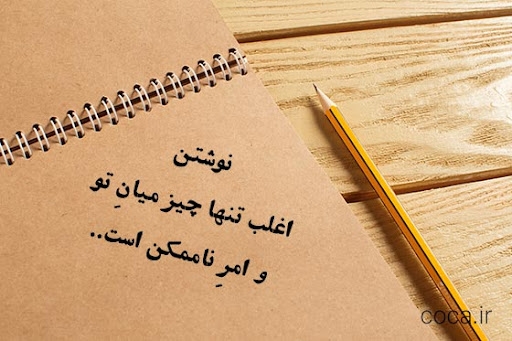 نوشتن
اغلب تنها چیز میانِ تو
و امرِ ناممکن است..
coca.ir